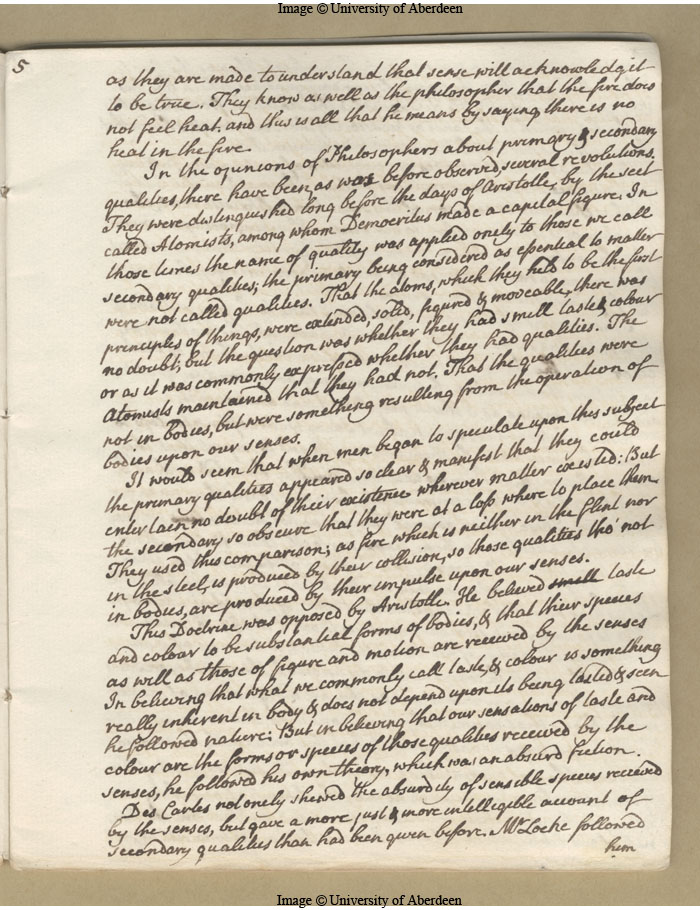 Image © University of Aberdeen
5
as they are made to understand that sense will acknowledg it
to be true. They know as well as the philosopher that the fire does
not feel heat. and this is all that he means by saying there is no
heat in the fire.
In the opinions of Philosophers about primary & secondary
qualities, there have been, as was before observed, several revolutions.
They were distinguished long before the days of Aristotle, by the sect
called Atomists, among whom Democritus made a capital figure. In
those times the name of quality was applied onely to those we call
secondary qualities; the primary being considered as essential to matter
were not called qualities. That the atoms, which they held to be the first
principles of things, were extended, solid, figured & moveable, there was
no doubt; but the question was whether they had smell taste & colour
or as it was commonly expressed whether they had qualities. The
Atomists maintained that they had not. That the qualities were
not in bodies, but were something resulting from the operation of
bodies upon our senses.
It would seem that when men began to speculate upon this subject
the primary qualities appeared so clear & manifest that they could
entertain no doubt of their existence wherever matter existed: But
the secondary so obscure that they were at a loss where to place them.
They used this comparison; as fire which is neither in the flint nor
in the steel, is produced by their collision, so those qualities tho' not
in bodies, are produced by their impulse upon our senses.
This Doctrine was opposed by Aristotle. He believed taste
and colour to be substantial forms of bodies, & that their species
as well as those of figure and motion are received by the senses
In believing that what we commonly call taste, & colour is something
really inherent in body & does not depend upon its being tasted & seen
he followed nature: But in believing that our sensations of taste and
colour are the forms or species of those qualities received by the
senses, he followed his own theory, which was an absurd fiction.
Des Cartes not onely shewed the absurdity of sensible species received
by the senses, but gave a more just & more intelligible account of
secondary qualities than had been given before. Mr Locke followed
him
Image © University of Aberdeen